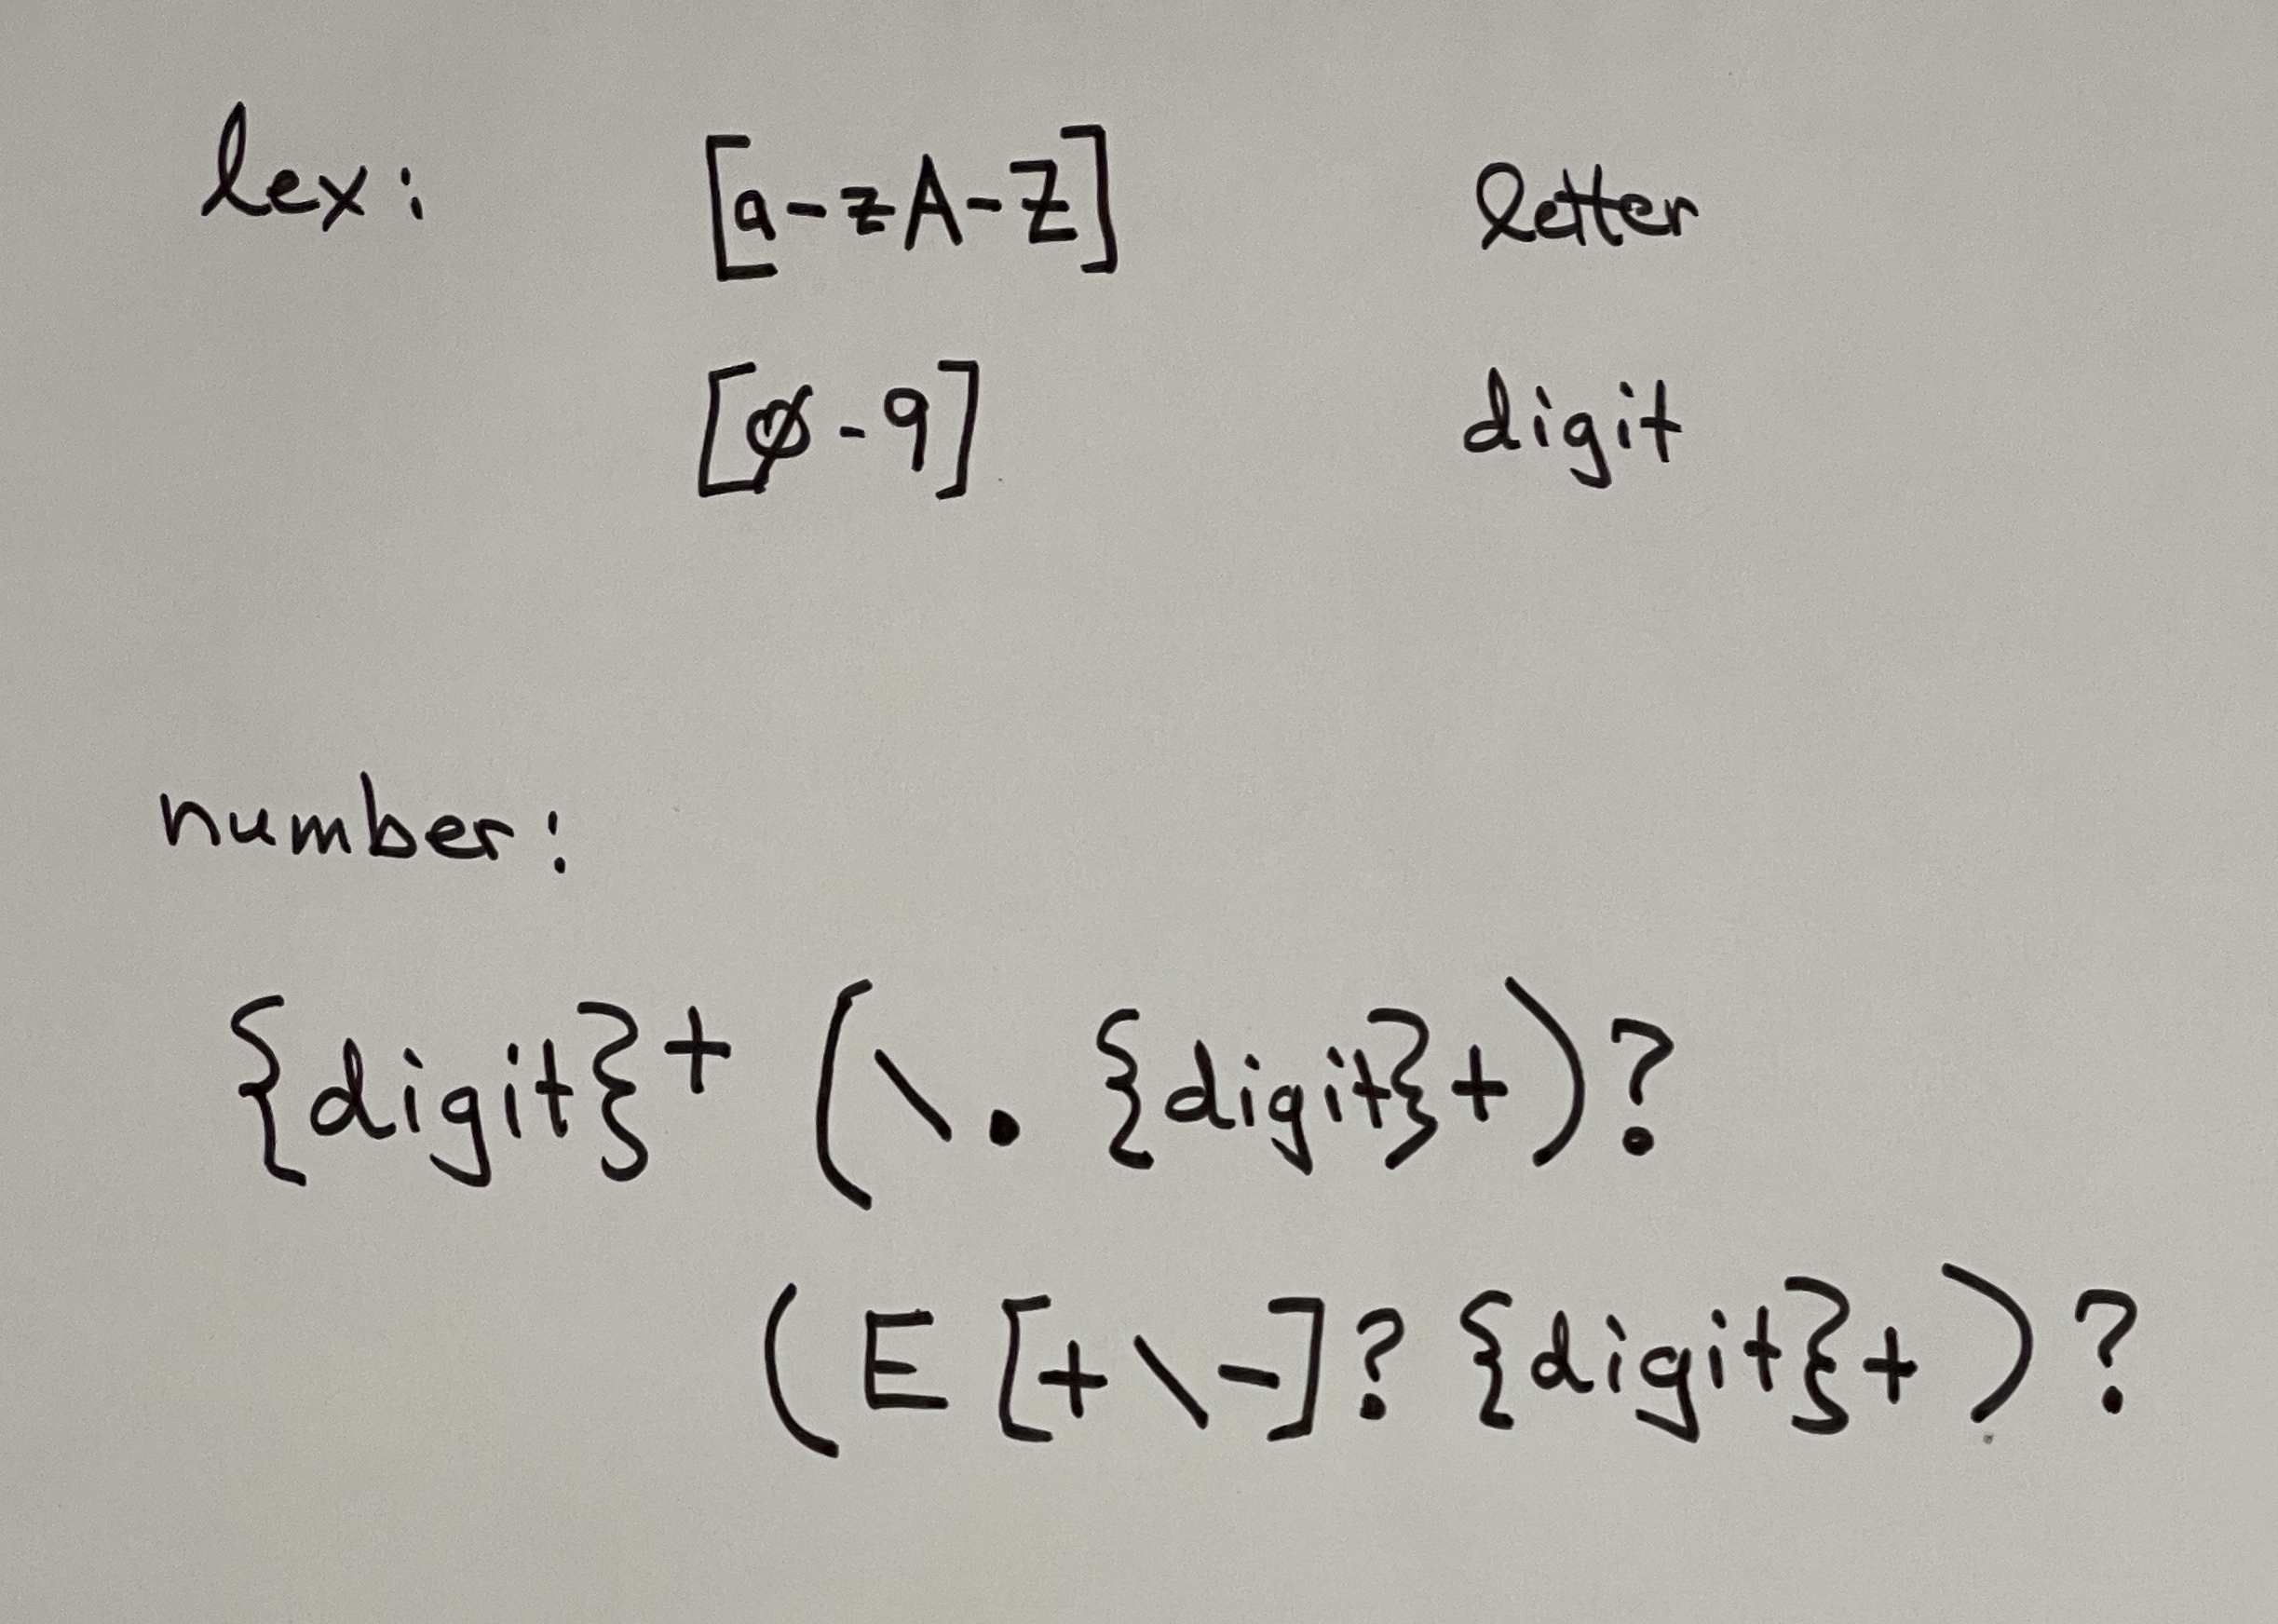 lex: [a-zA-Z] letter
[0-9] digit
number:
{digit}+ (\. {digit}+)?
(E [+\-]? {digit}+)?